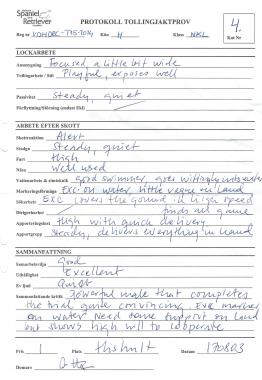 Spaniel
Retriever
PROTOKOLL TOLLINGJAKTPROV
Reg nr
Kön H
Klass NKL
4.
Kat Nr
LOCKARBETE
Focused, a little bit wide
Tollingarbete / Stil Playful, exposes well
Passivitet Steady, quiet
ARBETE EFTER SKOTT
Skottreaktion Alert
Stadga Steady, quiet
Fart High
Näsa Well used
Vattenarbete & simteknik good swimmer, goes willingly into water
Markeringsförmåga Exc on water, little vague on land
Söksarbete Exc covers the ground in high speed
Dirigerbarhet finds all game
Apporteringslust High with quick delivery
Apportgrepp Steady, delivers everything in hand
SAMMANFATTNING
Samarbetsvilja Good
Uthållighet Excellent
Ev ljud Quiet
Sammanfattande kritik Powerful male that completes
the trial quite convincing. Exc marking
on water need some support on land
but shows high will to cooperate
Pris 1
Plats
Datum 170803
Domare